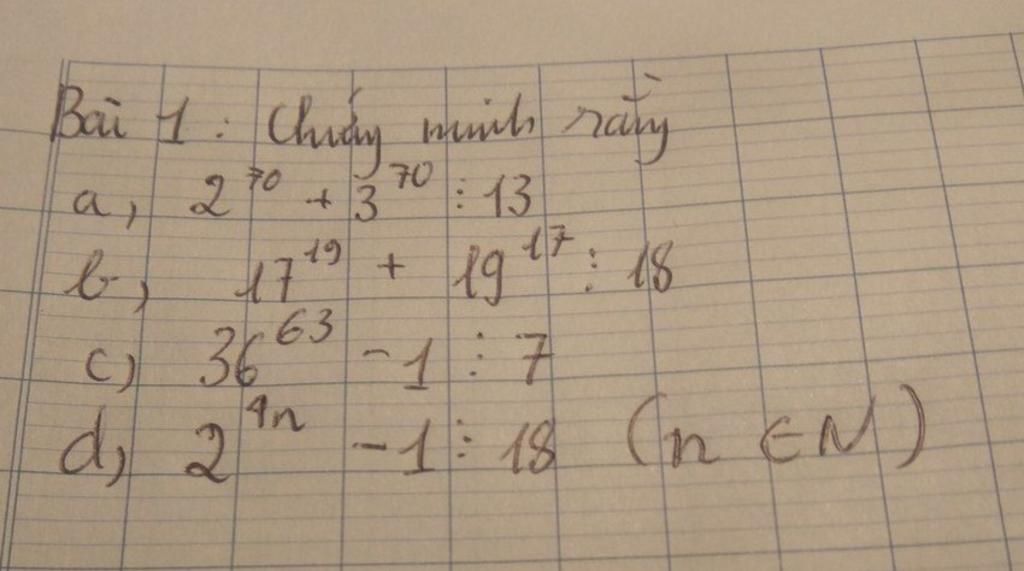 Bài 1 : Chứng minh rằng
a, 2^70 + 3^70 ⋮ 13
b, 17^19 + 19^17 ⋮ 18
c) 36^63 - 1 ⋮ 7
d, 2^4n - 1 ⋮ 18 (n ∈ N)